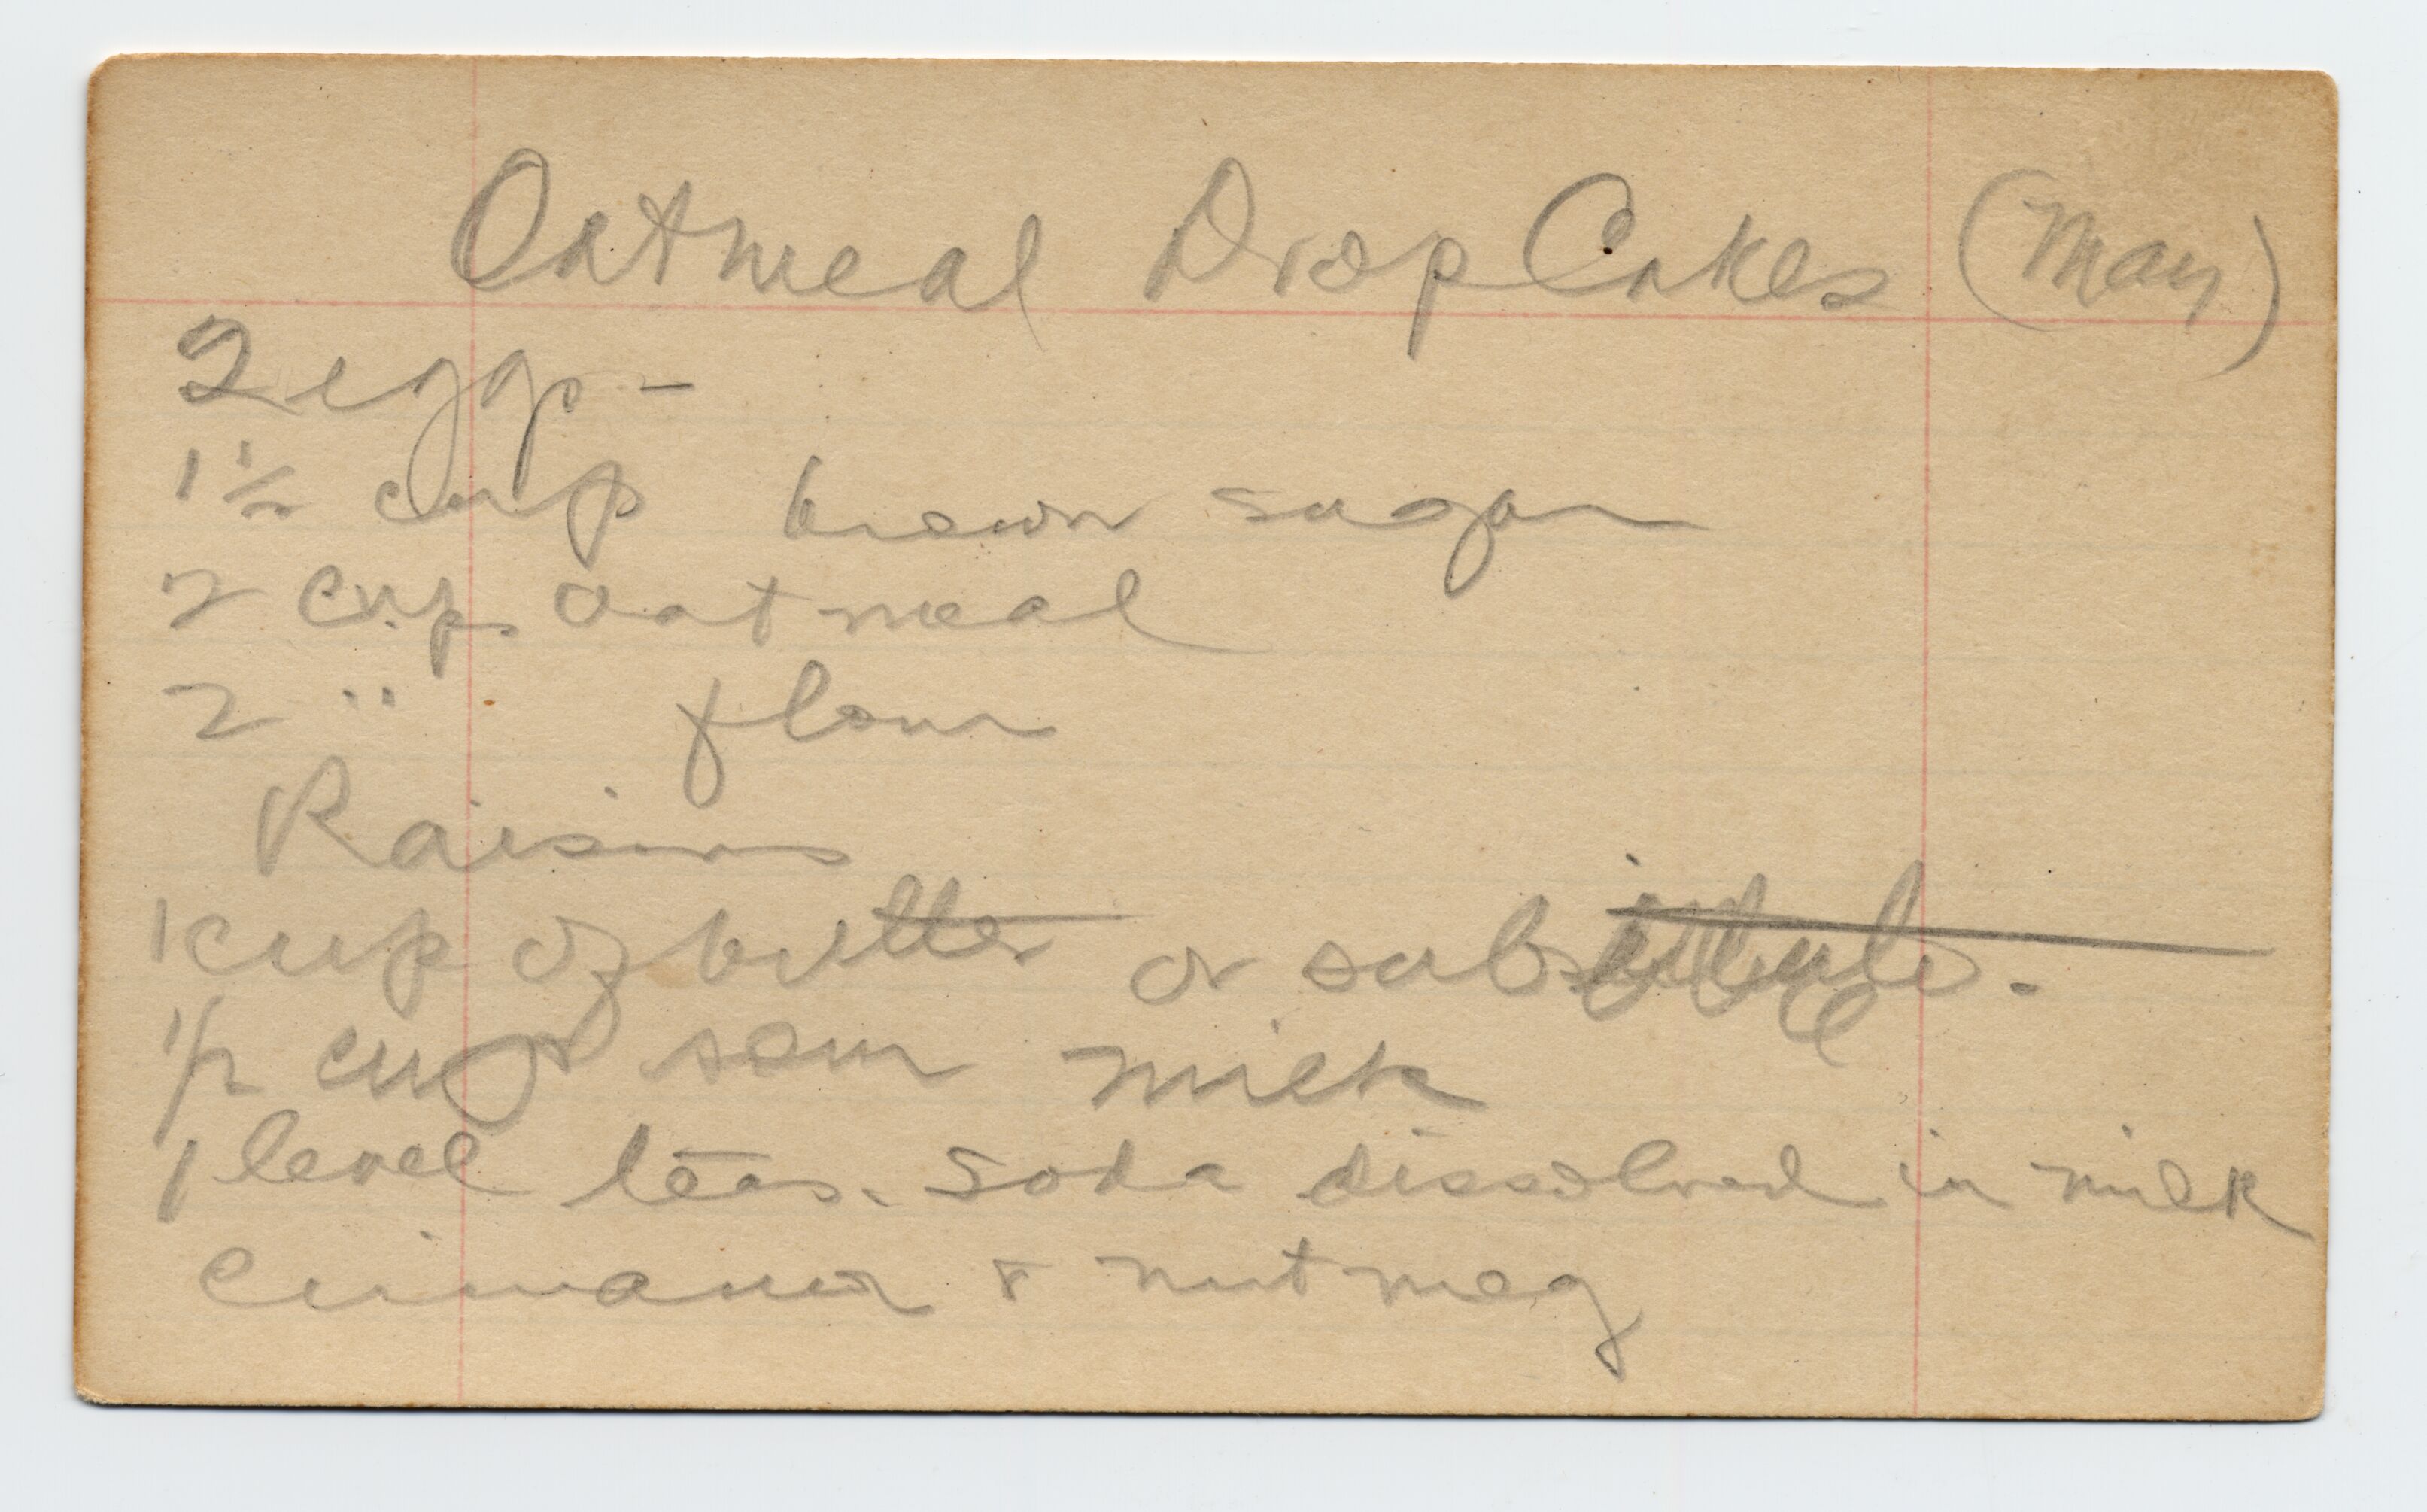 Oatmeal Drop Cakes (May)
2 eggs -
1 1/2 cup brown sugar
2 cups oatmeal
2 " flour
Raisins
1 cup of butter or substitute.
1/2 cup sour milk
1 level teas. Soda dissolved in milk
Cinnamon & nutmeg